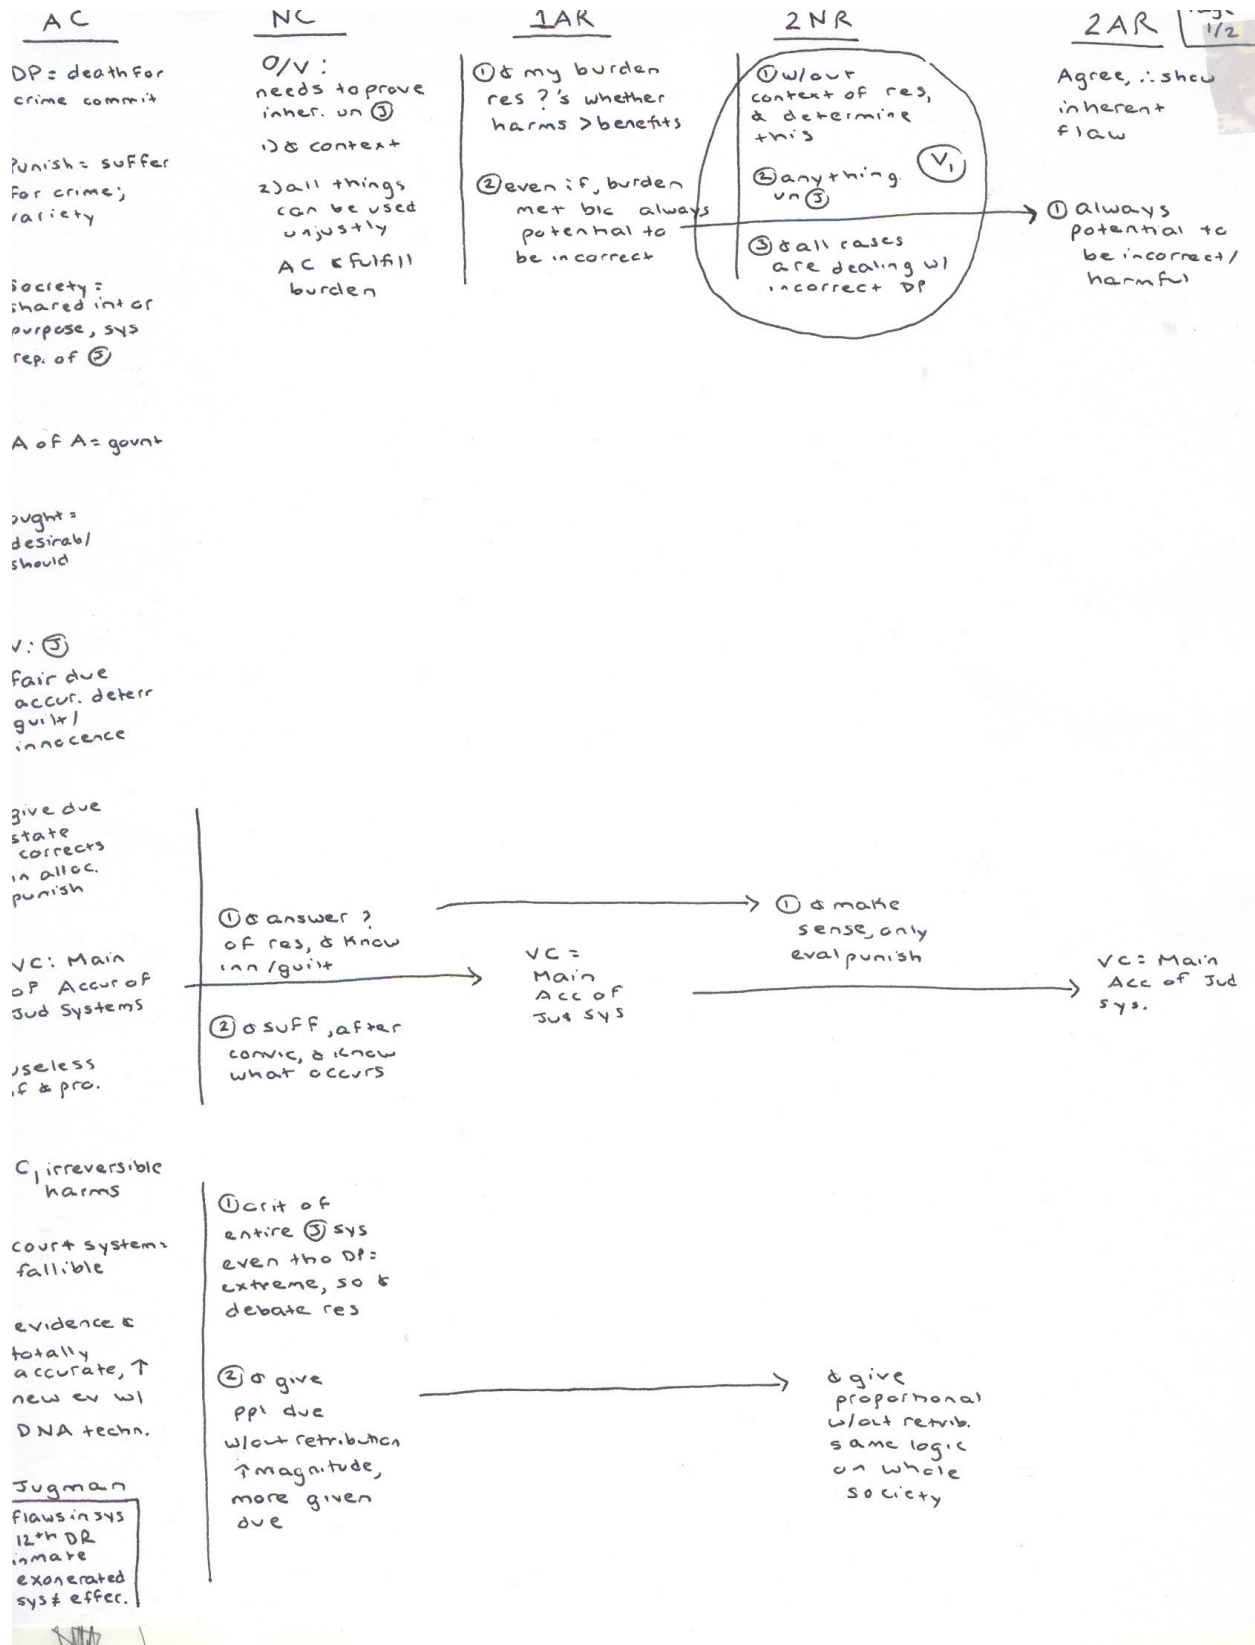 AC
DP = death for
crime commit
Punish = suffer
for crime;
variety
Society =
shared int or
purpose, sys
rep. of Ⓙ
A of A = govnt
ought =
desirab/
should
V: Ⓙ
fair due
accur. deterr
guilt/
innocence
give due
state
corrects
in alloc.
punish
VC: Main
of Accur of
Jud Systems
useless
if & pro.
C₁ irreversible
harms
court system =
fallible
evidence &
totally
accurate, ↑
new ev w/
DNA techn.
Jugman
flaws in sys
12th DR
inmate
exonerated
sys ≠ effec.
NC
O/V:
needs to prove
inher. un Ⓙ
1) & context
2) all things
can be used
unjustly
AC & fulfill
burden
① & answer ?
of res, & know
inn/guilt
② & suff, after
convic, & know
what occurs
① crit of
entire Ⓙ sys
even tho DP =
extreme, so &
debate res
② & give
ppl due
w/out retribution
↑ magnitude,
more given
due
1AR
① & my burden
res ?'s whether
harms > benefits
② even if, burden
met b/c always
potential to
be incorrect
VC =
Main
Acc of
Jud Sys
2NR
① w/out
context of res,
& determine
this
② anything
un Ⓙ
V₁
③ & all cases
are dealing w/
incorrect DP
① & make
sense, only
eval punish
& give
proportional
w/out retrib.
same logic
on whole
society
2AR
1/2
Agree, ∴ show
inherent
flaw
① always
potential to
be incorrect/
harmful
VC = Main
Acc of Jud
sys.